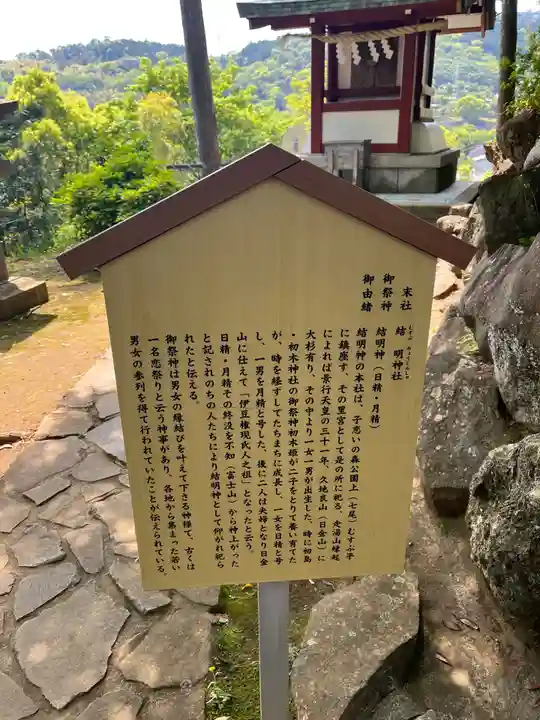 末社　結　明神社
むすぶ　みょうじんしゃ
御祭神　結明神（日精・月精）
御由緒　結明神の本社は、子恋いの森公園上（七尾）むすぶ平
に鎮座す、その里宮として是の所に祀る。走湯山縁起
によれば景行天皇の三十一年、久地良山（日金山）に
大杉有り、その中より一女一男が出生した、時に初島
・初木神社の御祭神初木姫が二子をとりて養い育てた
が、時を経ずしてたちまちに成長し、一女を日精と号
し、一男を月精と号した。後に二人は夫婦となり日金
山に仕えて「伊豆権現氏人之祖」となったと云う。
日精・月精その終没を不知（富士山）から神上がった
と記されのちの人たちにより結明神として仰がれ祀ら
れたと伝える。
御祭神は男女の縁結びを叶えて下さる神様で、古くは
一名恋祭りと云う神事があり、各地から集まった若い
男女の参列を得て行われていたことが伝えられている。